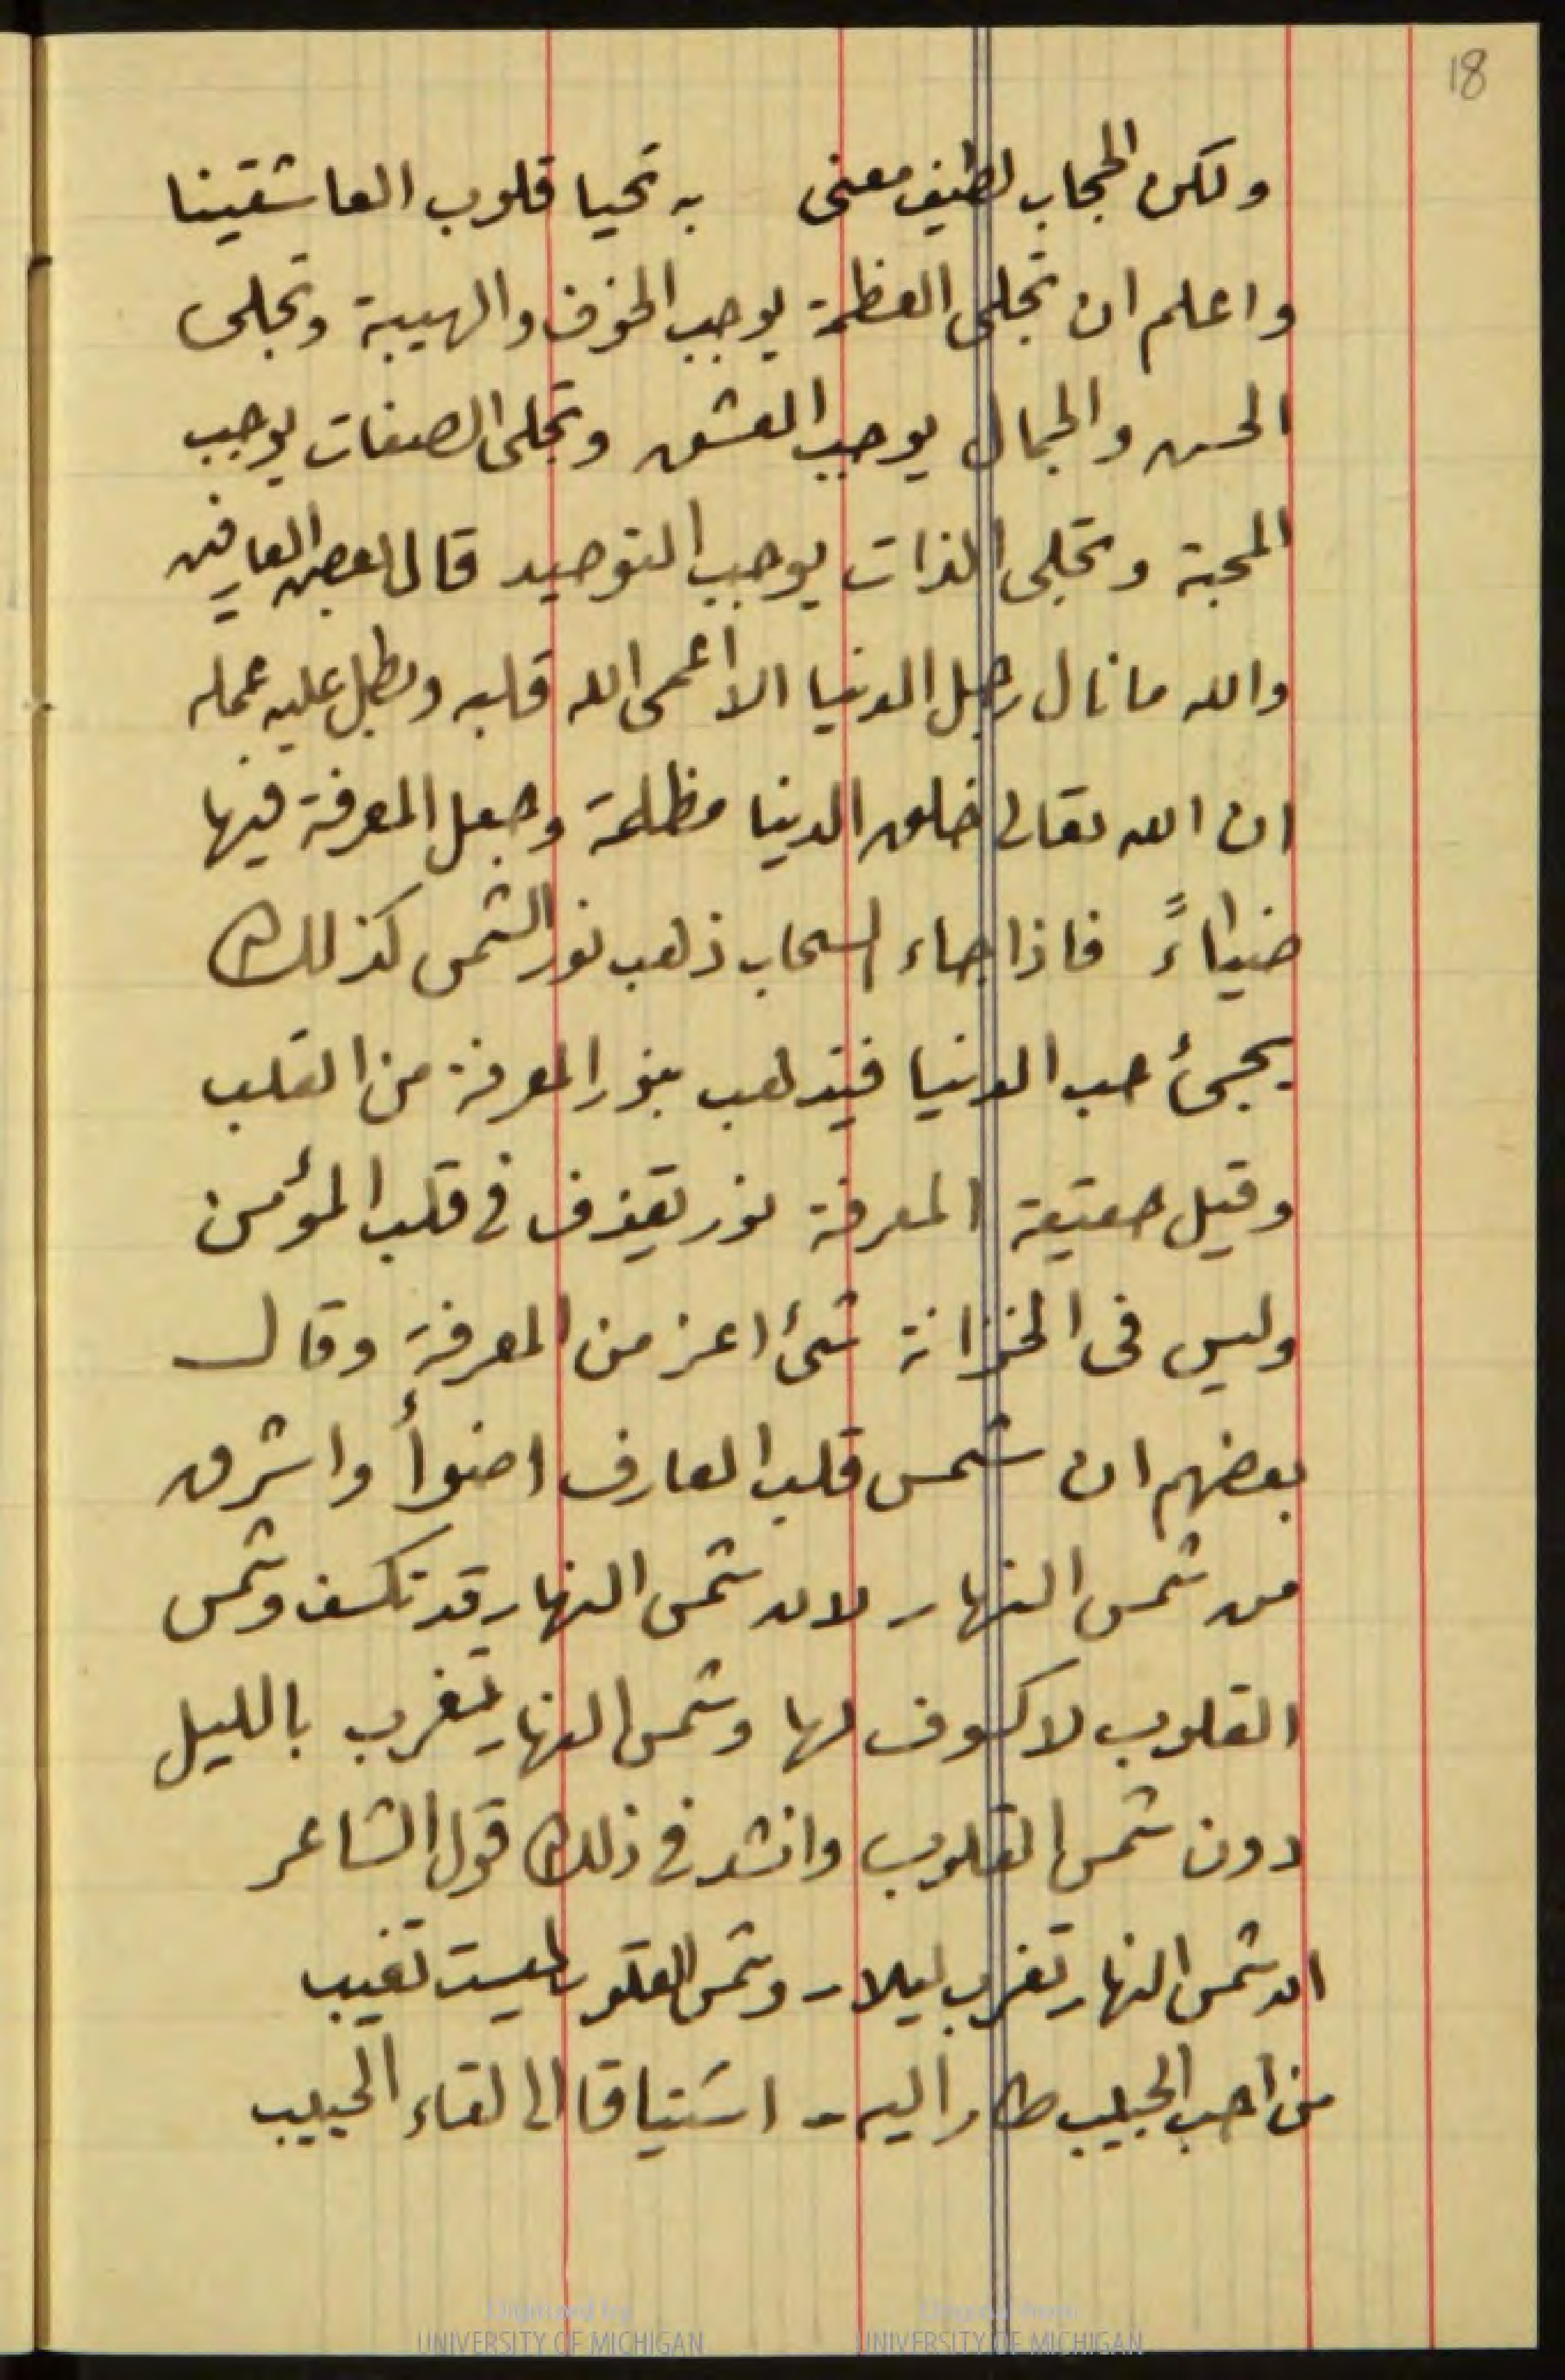 18
ولكن الحجاب لطيف معنى به تحيا قلوب العاشقينا
واعلم ان تجلى العظمة يوجب الخوف والهيبة وتجلى
الحسن والجمال يوجب العشق وتجلى الصفات يوجب
المحبة وتجلى الذات يوجب التوحيد قال بعض العارفين
والله ما نال رجل الدنيا الا اعمى الله قلبه وبطل عليه عمله
ان الله تعالى خلق الدنيا مظلمة وجعل المعرفة فيها
ضياءً فاذا جاء السحاب ذهب نور الشمس كذلك
يجئ حب الدنيا فيذهب بنور المعرفة من القلب
وقيل حقيقة المعرفة نور يقذف فى قلب المؤمن
وليس فى الخزانة شئ اعز من المعرفة وقال
بعضهم ان شمس قلب العارف اضوأ واشرق
من شمس النهار لان شمس النهار قد تكسف وشمس
القلوب لا كسوف لها وشمس النهار تغرب بالليل
دون شمس القلوب وانشد فى ذلك قول الشاعر
ان شمس النهار تغرب ليلا - وشمس القلوب ليست تغيب
من احب الحبيب طار اليه - اشتياقا الى لقاء الحبيب
Digitized by
UNIVERSITY OF MICHIGAN
Original from
UNIVERSITY OF MICHIGAN